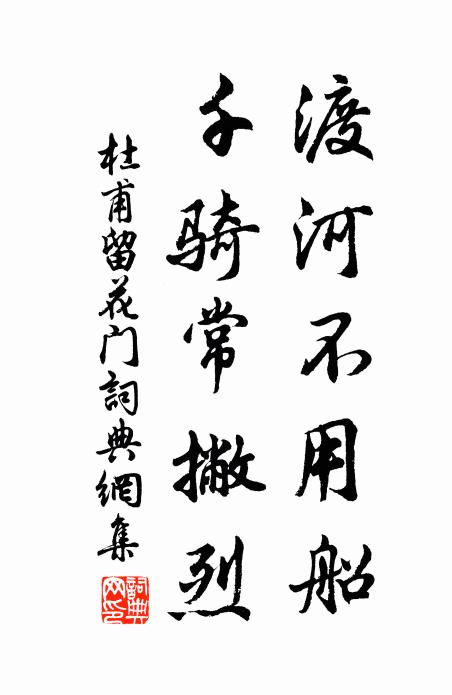 渡河不用船
千骑常撇烈
杜甫留花门詞典網集
詞典网印